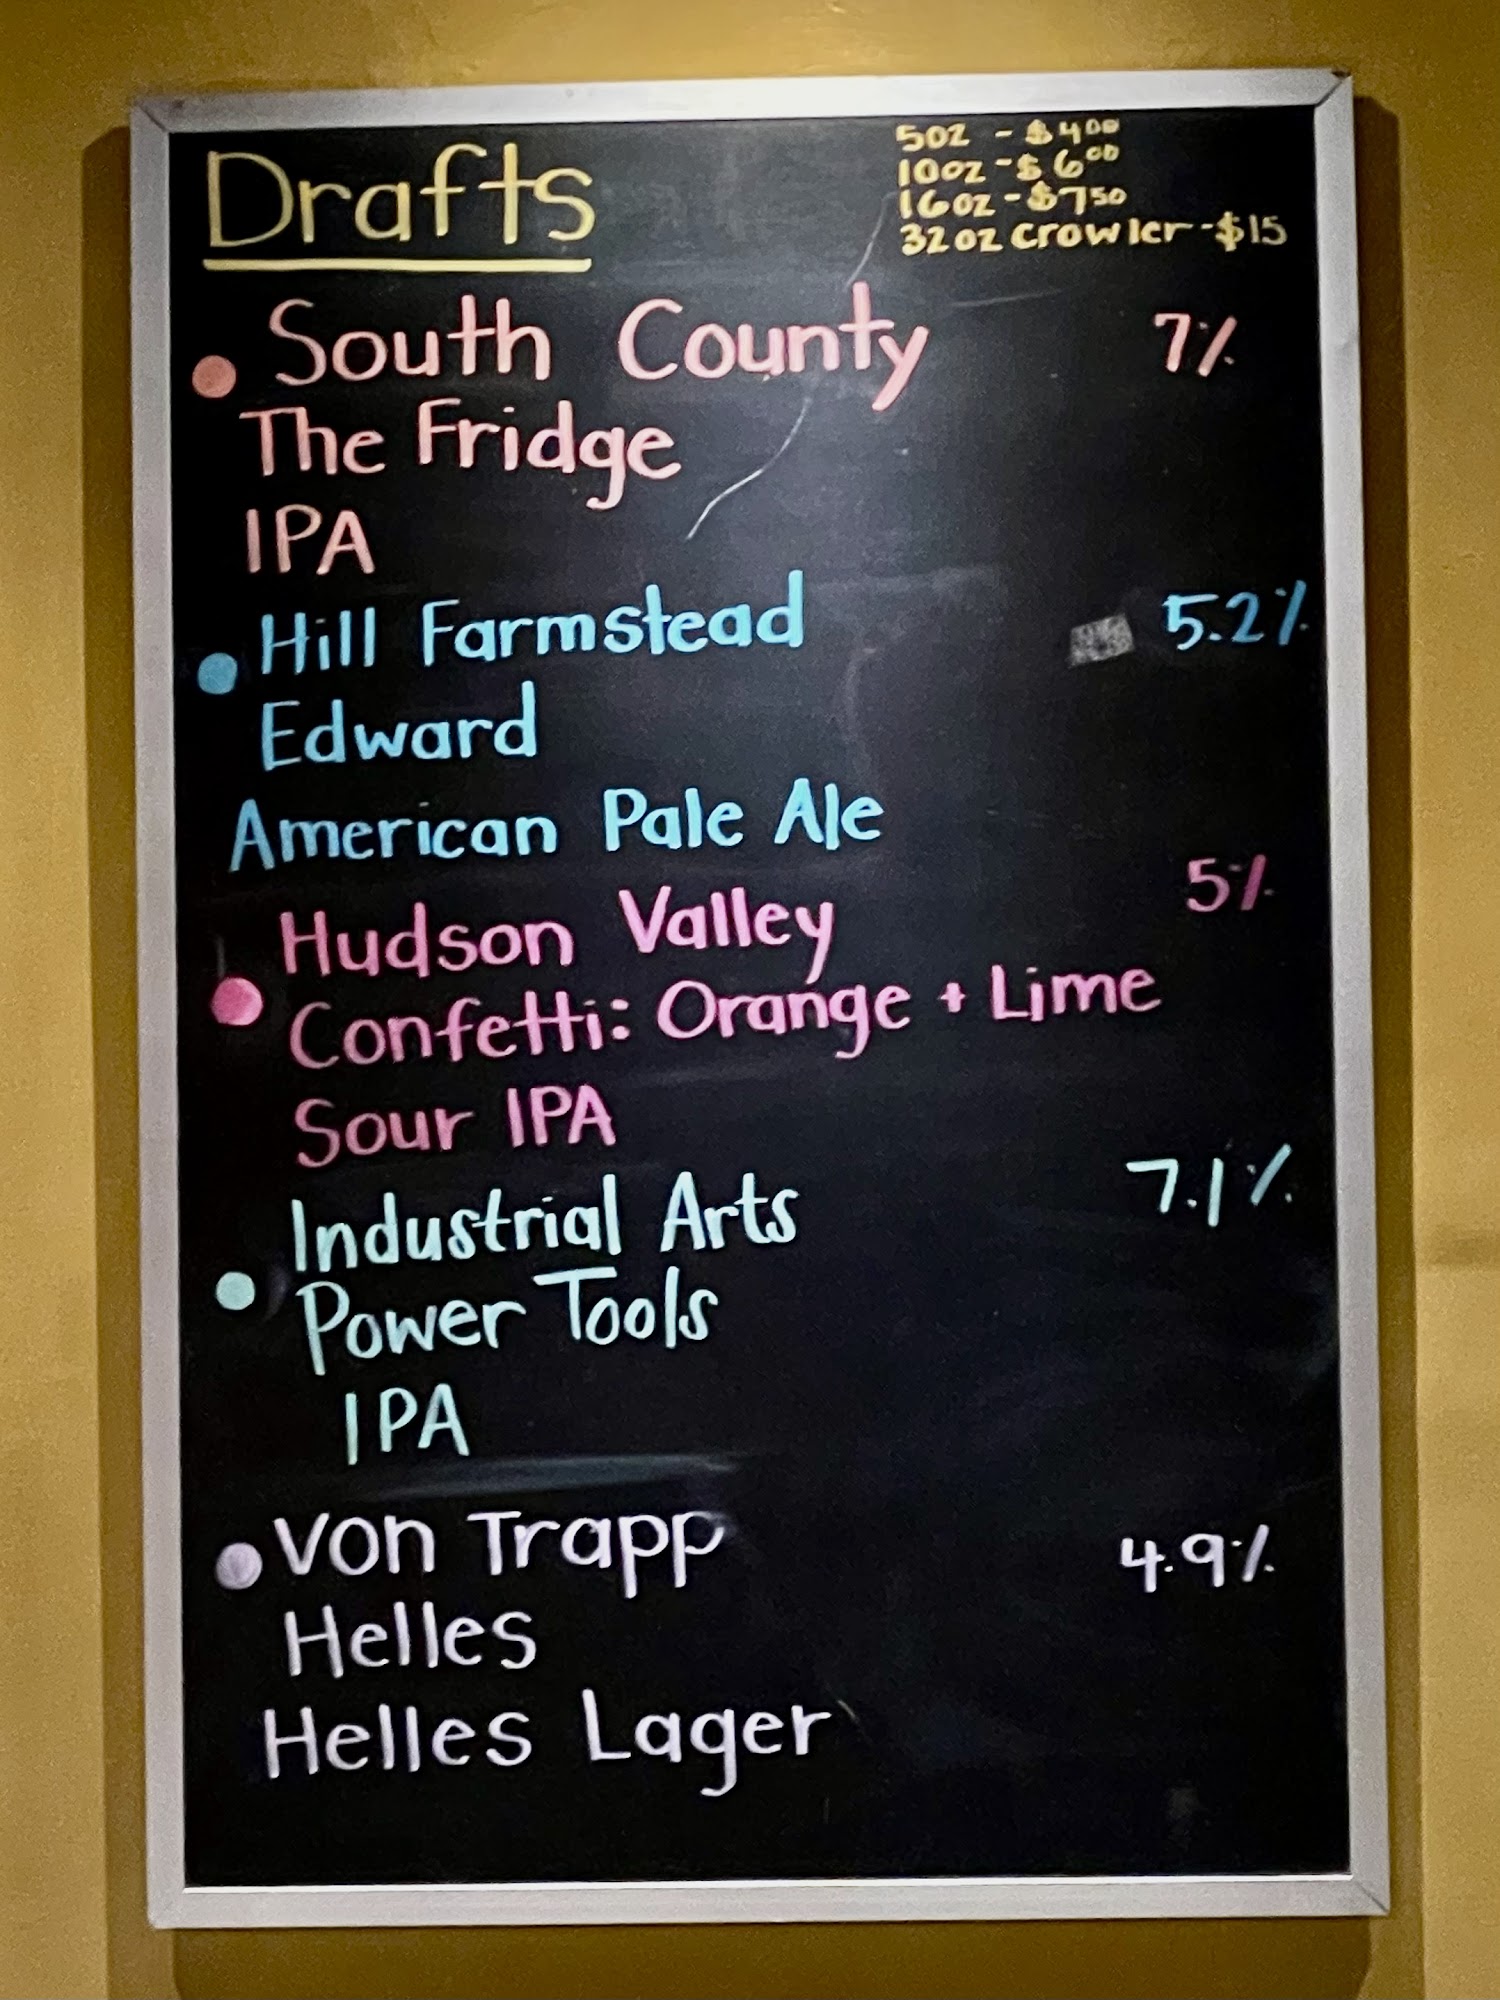 Drafts
5oz - $4.00
10oz - $6.00
16oz - $7.50
32oz crowler - $15
South County 7%
The Fridge
IPA
Hill Farmstead 5.2%
Edward
American Pale Ale
Hudson Valley 5%
Confetti: Orange + Lime
Sour IPA
Industrial Arts 7.1%
Power Tools
IPA
Von Trapp 4.9%
Helles
Helles Lager